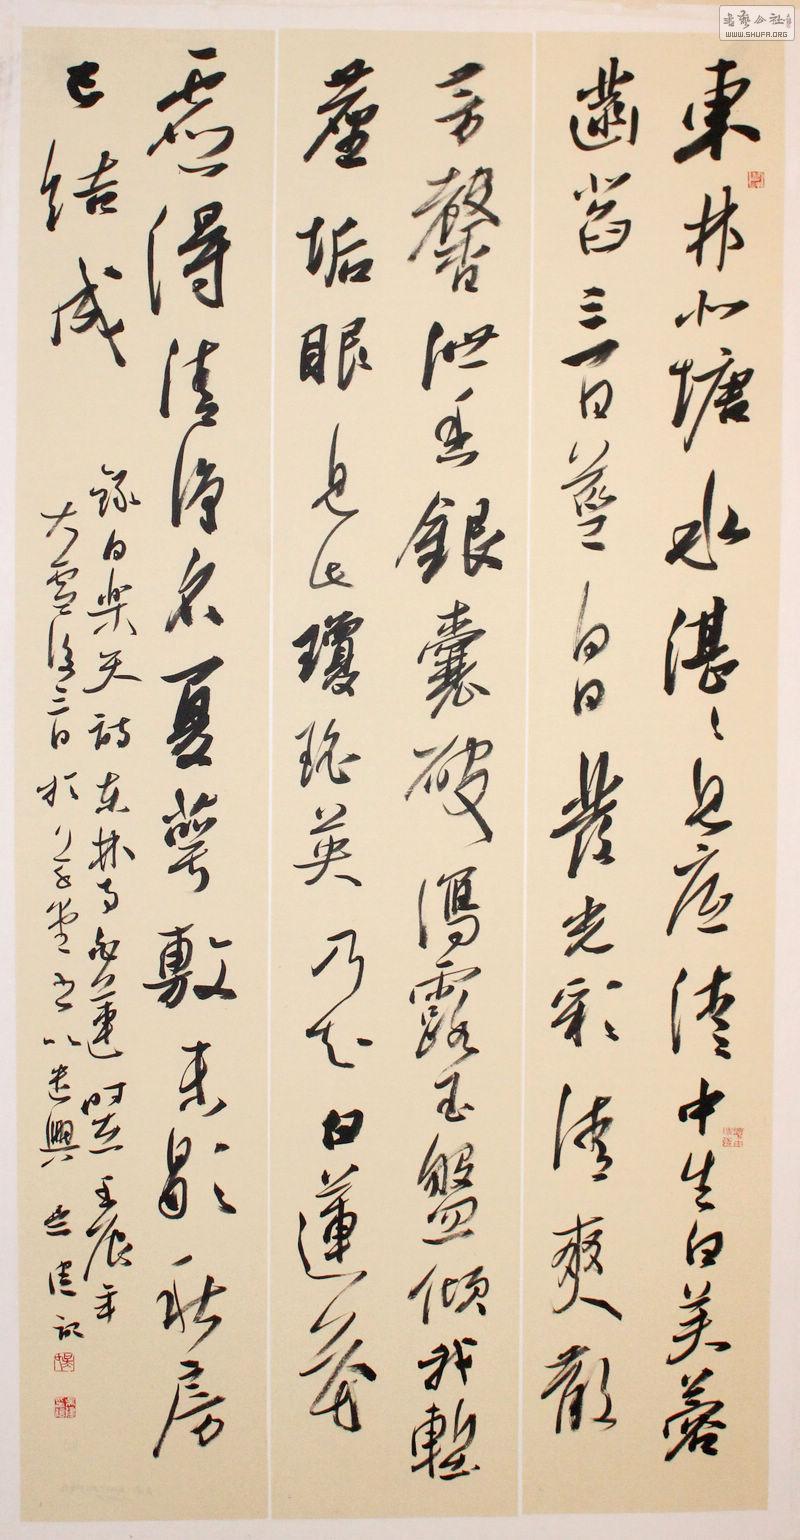 東林北塘水湛〻見底清中生白芙蓉
菡萏三百莖白日發光彩清爽散
芳馨泄香銀囊破瀉露玉盤傾我慙
塵垢眼見此瓊瑤英乃知白蓮花
虛得清淨名夏萼敷未歇秋房
已結成
錄白樂天詩東林寺白蓮時在壬辰年
大雪後三日於堂書以遣興建記
書藝公社
WWW.SHUFA.ORG